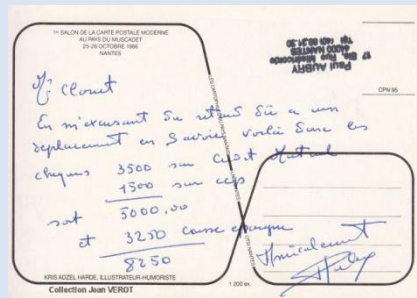 1er SALON DE LA CARTE POSTALE MODERNE
AU PAYS DU MUSCADET
25-26 OCTOBRE 1986
NANTES
Paul AUBRY
17 Bis, Rue
44000 NANTES
CPN 95
Mr Clouet
En m'excusant du retard dû à un
deplacement en Savoie voilà donc les
cheques 3500 sur Credit Mutuel
1500 sur ccp
soit 5000,00
et 3250 caisse epargne
8250
Amicalement
KRIS ADZEL HARDE, ILLUSTRATEUR-HUMORISTE
1 200 ex.
Collection Jean VEROT